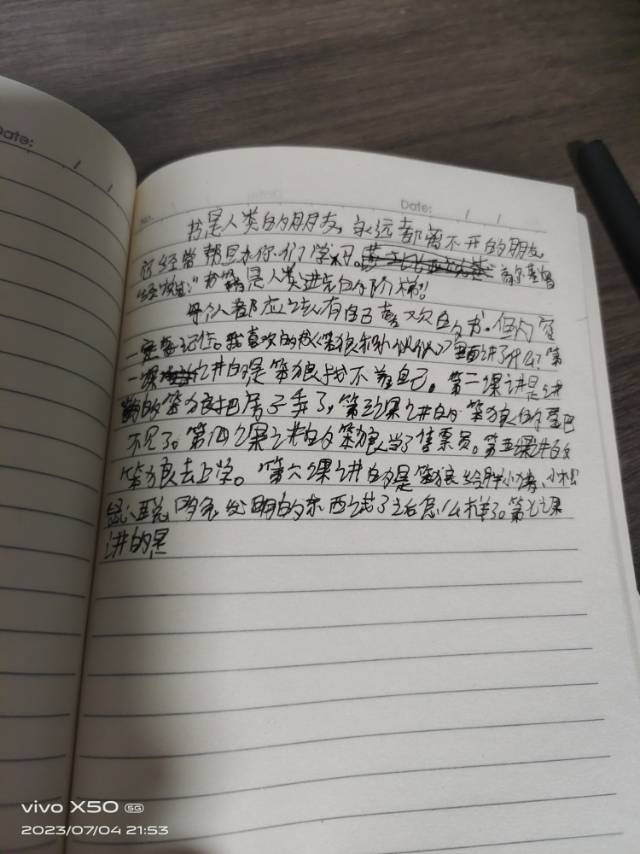 Date:
No.
Date:
书是人类的朋友，永远都离不开的朋友
它经常帮助你们学习。高尔基曾
经说过："书籍是人类进步的阶梯！
每个人都应该有自己喜欢的书。但内容
一定要记住。我喜欢的《笨狼和小伙伙》里面讲了什么？第
一课讲的是笨狼找不着自己。第二课讲是讲
的笨狼把房子弄了，第三课讲的笨狼的尾巴
不见了。第四课讲的笨狼当了售票员。第五课讲的
笨狼去上学。第六课讲的是笨狼给胖小猪、小松
发明的东西试了之后怎么样了。第七课
讲的是
vivo X50 5G
2023/07/04 21:53